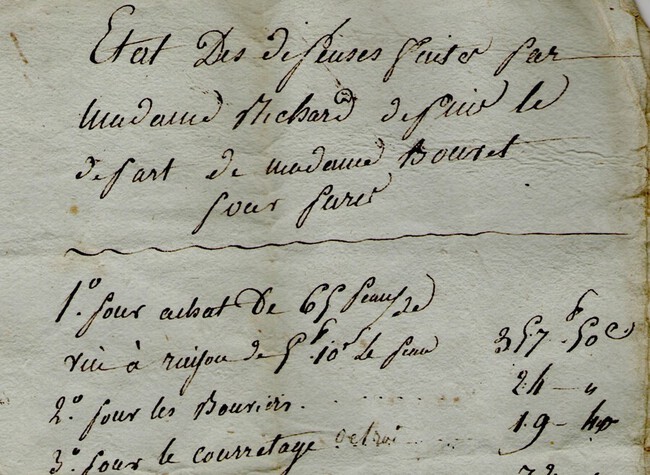 Etat Des depenses faites par
madame Richard depuis le
depart de madame Bouret
pour paris
1º pour achat De 65 peaux de
vin à raison de 5f 10s le peau 357f 50c
2º pour les Bouriers 24 - "
3º pour le courretage octroi 19 - 40